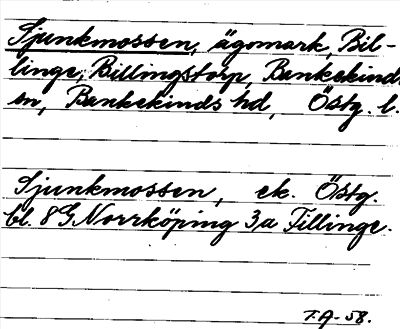 Sjunkmossen, ägomark, Bil-
linge, Billingstorp, Bankekinds
sn, Bankekinds hd, Östg. l.
Sjunkmossen, ek. Östg.
bl. 8 G Norrköping 3a Fillinge.
T.A. -58.